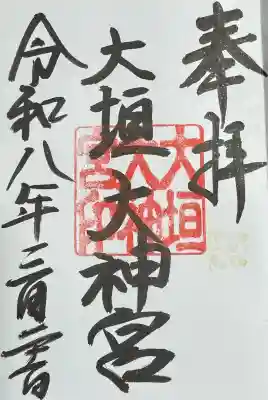 奉拝
大垣大神宮
大垣大神宮印
令和八年三月二十日